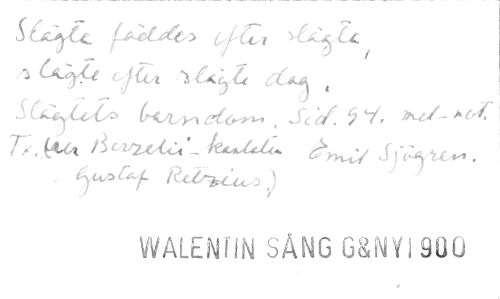 Slägte föddes efter slägte,
slägte efter slägte dog.
Slägtets barndom. Sid. 94. mel-not.
Tx. (ur Berzelii-kantaten Emil Sjögren.
Gustaf Retzius.)
WALENTIN SÅNG G&NY1900